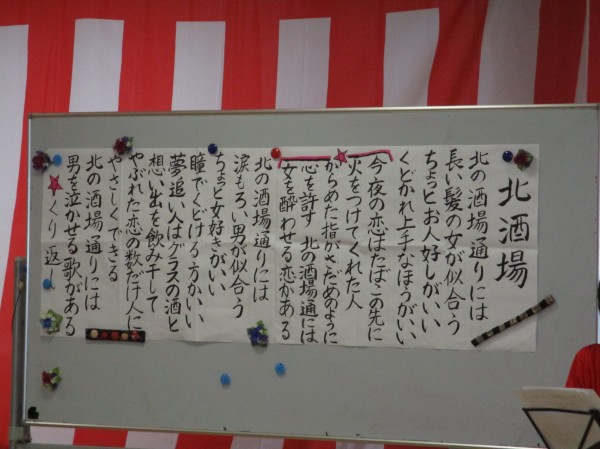 北酒場
北の酒場通りには
長い髪の女が似合う
ちょっとお人好しがいい
くどかれ上手なほうがいい
今夜の恋はたばこの先に
火をつけてくれた人
からめた指がさだめのように
心を許す 北の酒場通には
女を酔わせる恋がある
北の酒場通りには
涙もろい男が似合う
ちょっと女好きがいい
瞳でくどける方がいい
夢追い人はグラスの酒と
想い出を飲み干して
やぶれた恋の数だけ人に
やさしくできる
北の酒場通りには
男を泣かせる歌がある
くり返し